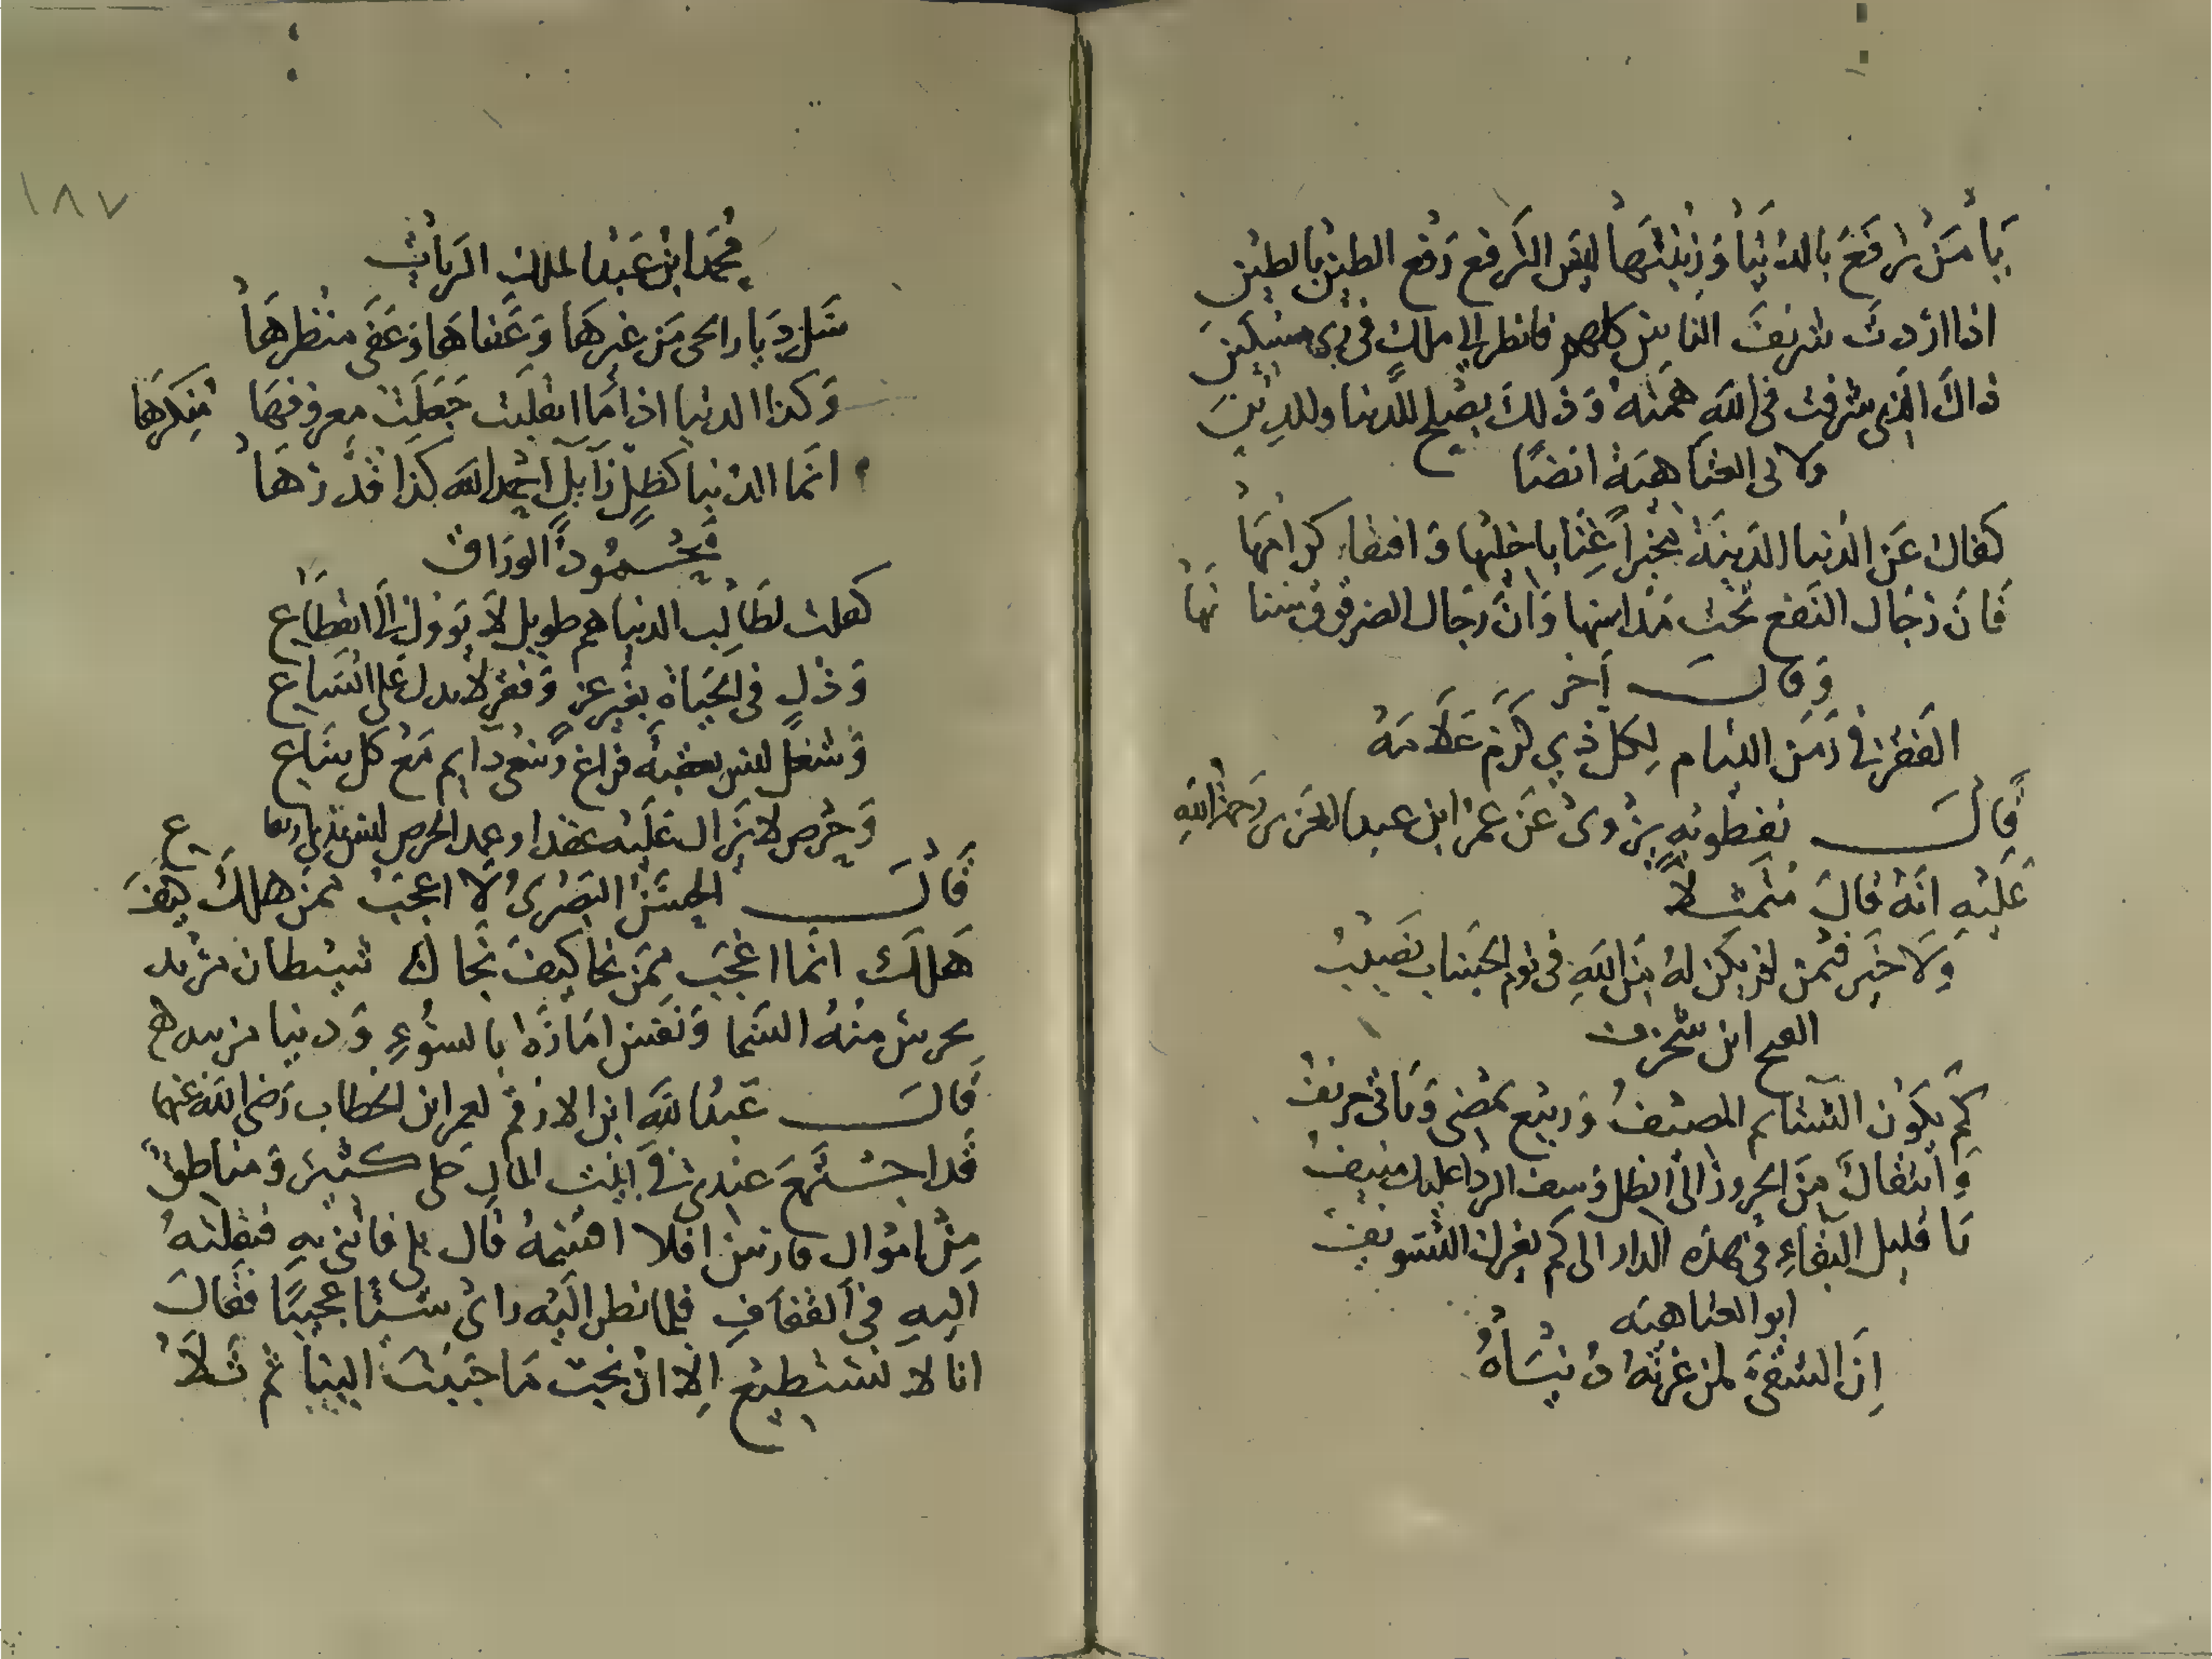 يا من ترفع بالدنيا وزينتها ليس الترفع رفع الطين بالطين
اذا اردت شريف الناس كلهم فانظر الى ملك في زي مسكين
ذاك الذي شرفت في الله همته وذلك يصلح للدنيا وللدين
ولابي العتاهية ايضا
كفاك عن الدنيا الدنية مخبرا غنا باخليها وافتقار كرامها
فان رجال النفع تحت مداسها وان رجال الضر فوق سنا مها
وقال آخر
الفقر في زمن الليام لكل ذي كرم علامه
قال نفطويه يروى عن عمر ابن عبد العزيز رحمة الله
عليه انه قال متمثلا
ولا خير فيمن لم يكن له من الله في يوم الحساب نصيب
الفتح ابن شخرف
كم يكون الشتا ثم المصيف وربيع يمضي وياتي خريف
وانتقال من الحرور الى الظل وسيف الردا عليك منيف
يا قليل البقاء في هذه الدار الى كم يغرك التسويف
ابو العتاهيه
ان الشقي لمن غرته دنياه
١٨٧
محمد ابن عبد الملك الزيات
سل ديار الحي من غيرها وعفاها وعفى منظرها
وكذا الدنيا اذا ما انقلبت جعلت معروفها منكرها
انما الدنيا كظل زايل احمد الله كذا قدرها
محمود الوراق
كفلت لطالب الدنيا هم طويل لا يوول الى انقطاع
وذل في الحياة بغير عز وفقر لا يدل على اتساع
وشغل ليس يعقبه فراغ وسعي دايم مع كل ساع
وحرص لا يزال عليه عبدا وعبد الحرص ليس بذي ارتفا ع
قال الحسن البصري لا اعجب ممن هلك كيف
هلك انما اعجب ممن نجا كيف نجا لك شيطان مريد
يحرس منه السما ونفس امارة بالسوء ودنيا مزينة
قال عبد الله ابن الارقم لعمر ابن الخطاب رضي الله عنهما
قد اجتمع عندي في بيت المال حلى كثير ومناطق
من اموال فارس افلا اقسمه قال بلى فاتني به فنقلته
اليه في القفاف فلما نظر اليه راى شيئا عجيبا فقال
انا لا نستطيع الا ان نحب ما حببت الينا ثم تلا